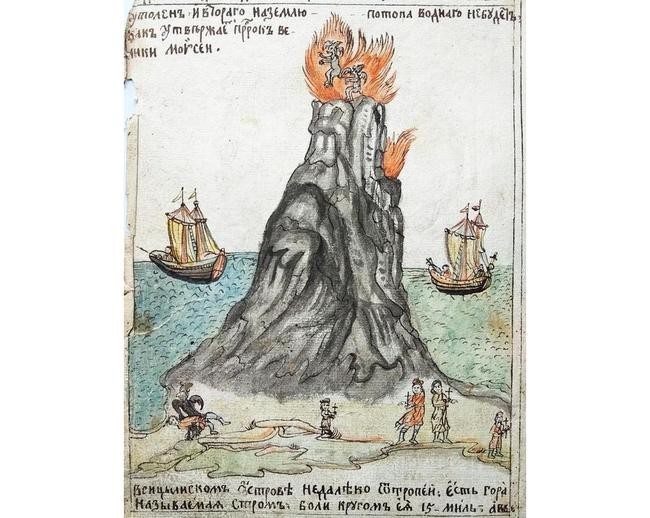 утоленъ· и втораго наземлю потопа воднаго небудетъ:
какъ утвержае пррокъ ве
лики моѵсеи.
Всицылискомъ ѡстровѣ недалѣко ѿтропеи: ѣсть гора
называемая стромъ: боли кругомъ ея 15 миль: